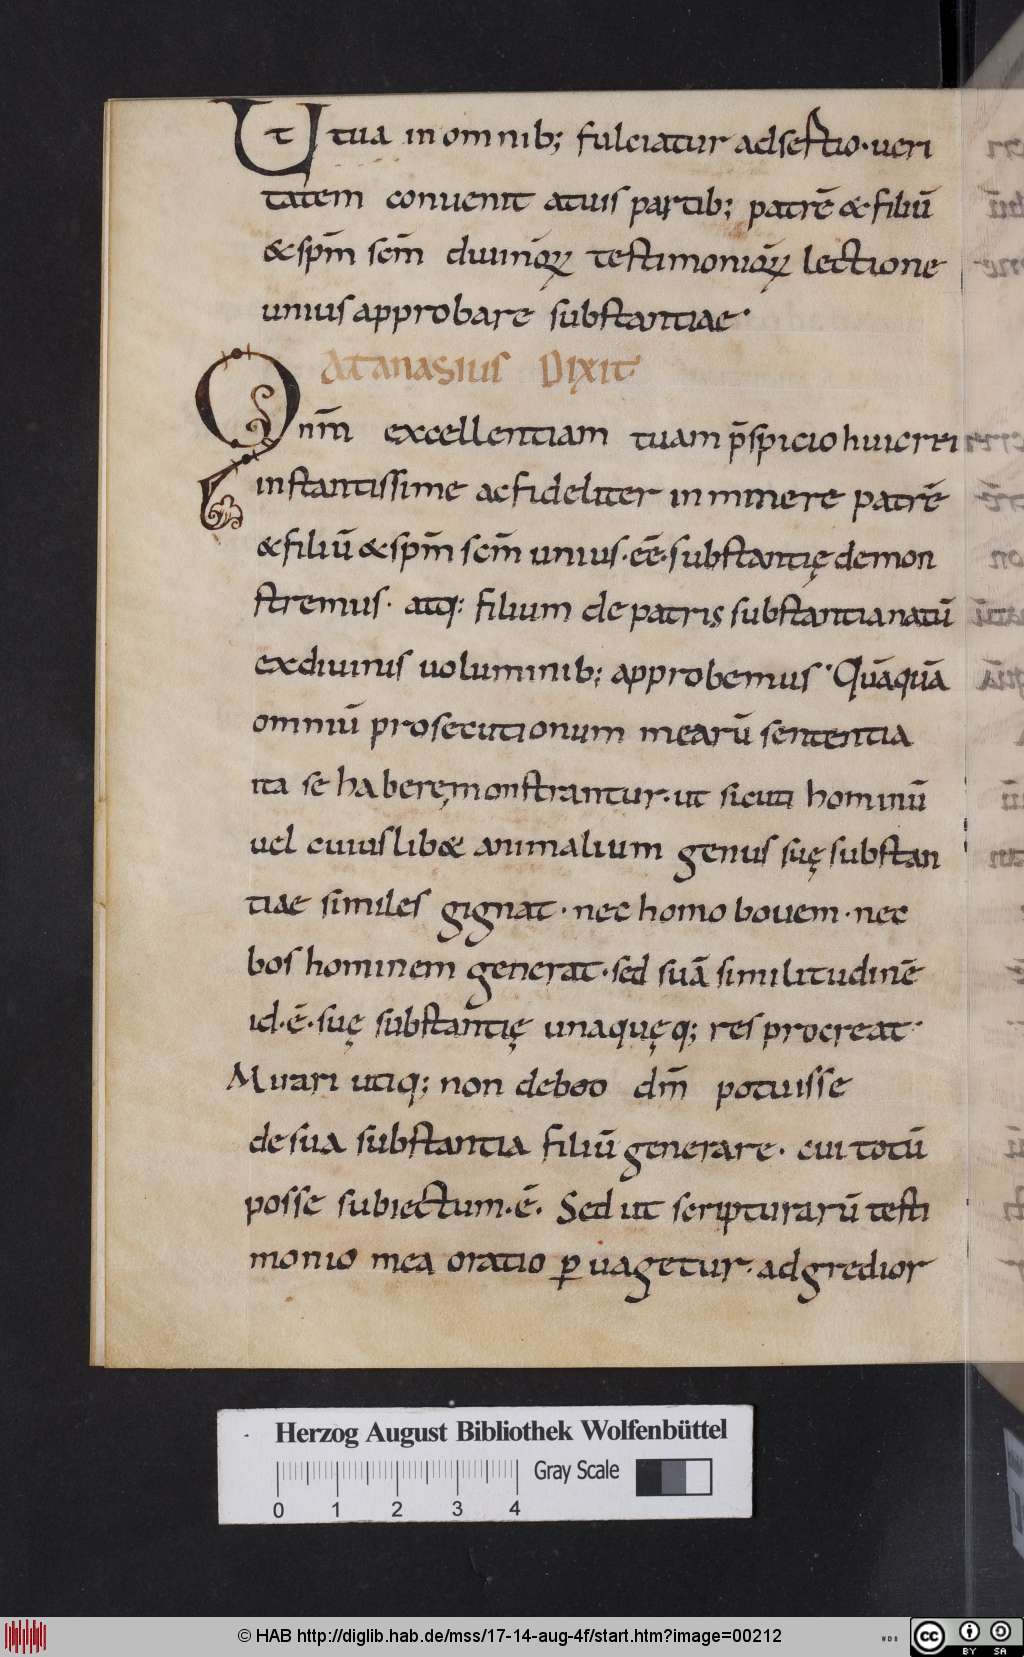 Ut tua in omnib; fulciatur adsertio· ueri
tatem conuenit a tuis partib; patrē & filiū
& sp̄m sc̄m diuinoꝝ testimonioꝝ lectione
unius approbare substantiae·
Atanasius Dixit
Qm̄ excellentiam tuam p̄spicio huic rei
instantissime ac fideliter inminere patrē
& filiū & sp̄m sc̄m unius· ee̅· substantię demon
stremus· atq: filium de patris substantia natū
ex diuinis uoluminib; approbemus· Quāquā
omniū prosecutionum mearū sententia
ita se habere monstrantur· ut sicuti hominū
uel cuiuslib& animalium genus suę substan
tiae similes gignat· nec homo bouem· nec
bos hominem generat· sed suā similitudinē
id· ē· suę substantię unaquęq; res procreat·
Mirari utiq; non debeo dm̄ potuisse
de sua substantia filiū generare· cui totū
posse subiectum· ē· Sed ut scripturarū testi
monio mea oratio ꝑuagetur· adgredior
Herzog August Bibliothek Wolfenbüttel
Gray Scale
0 1 2 3 4
© HAB http://diglib.hab.de/mss/17-14-aug-4f/start.htm?image=00212
WDB
cc BY SA